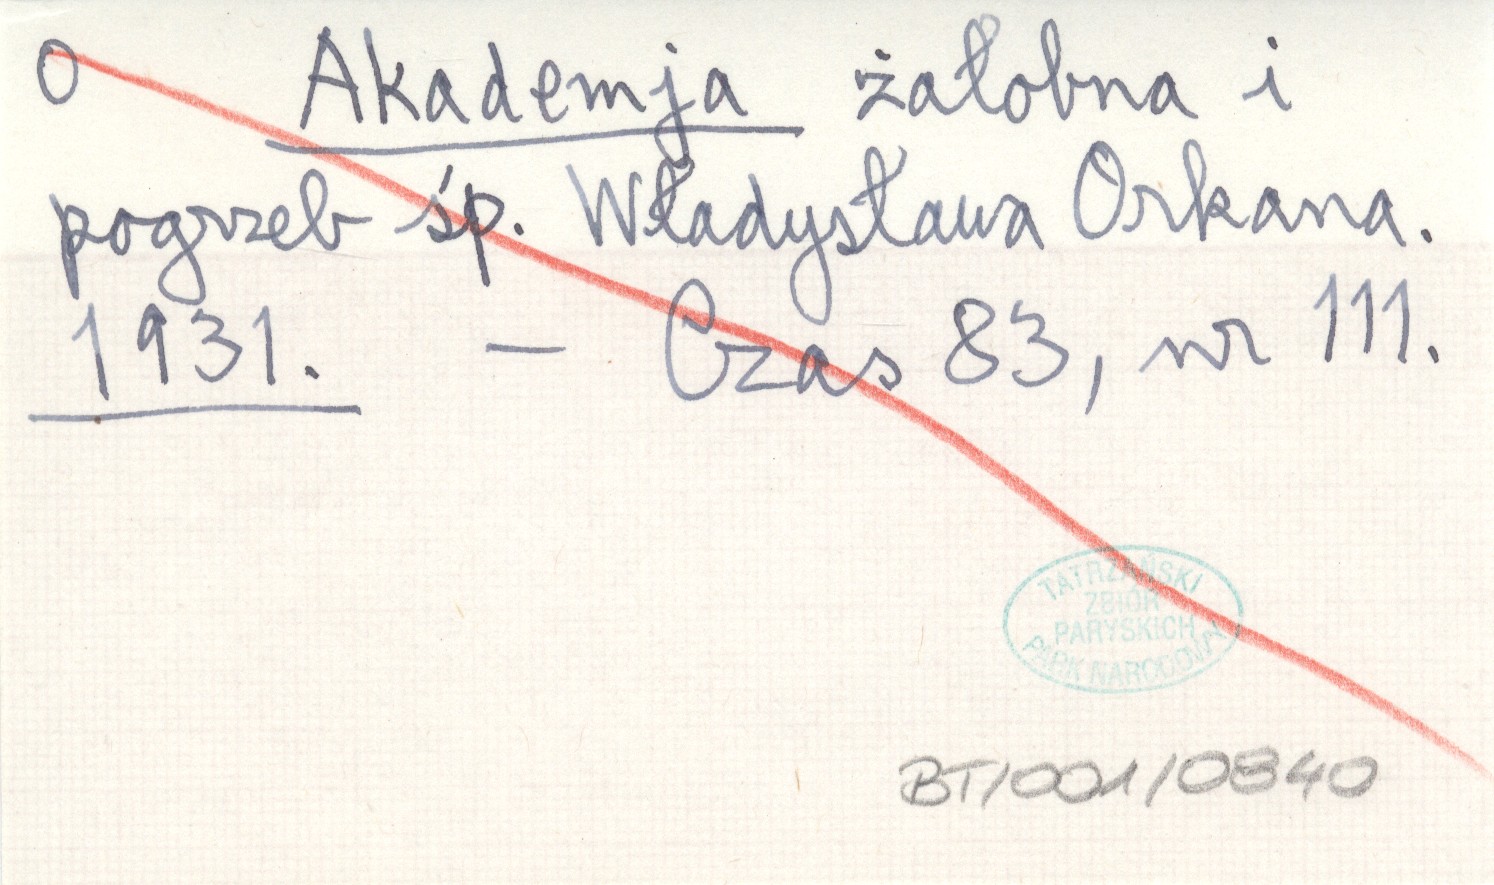 O Akademja żałobna i
pogrzeb śp. Władysława Orkana.
1931. — Czas 83, nr 111.
TATRZAŃSKI
ZBIÓR
PARYSKICH
PARK NARODOWY
BT/001/0840